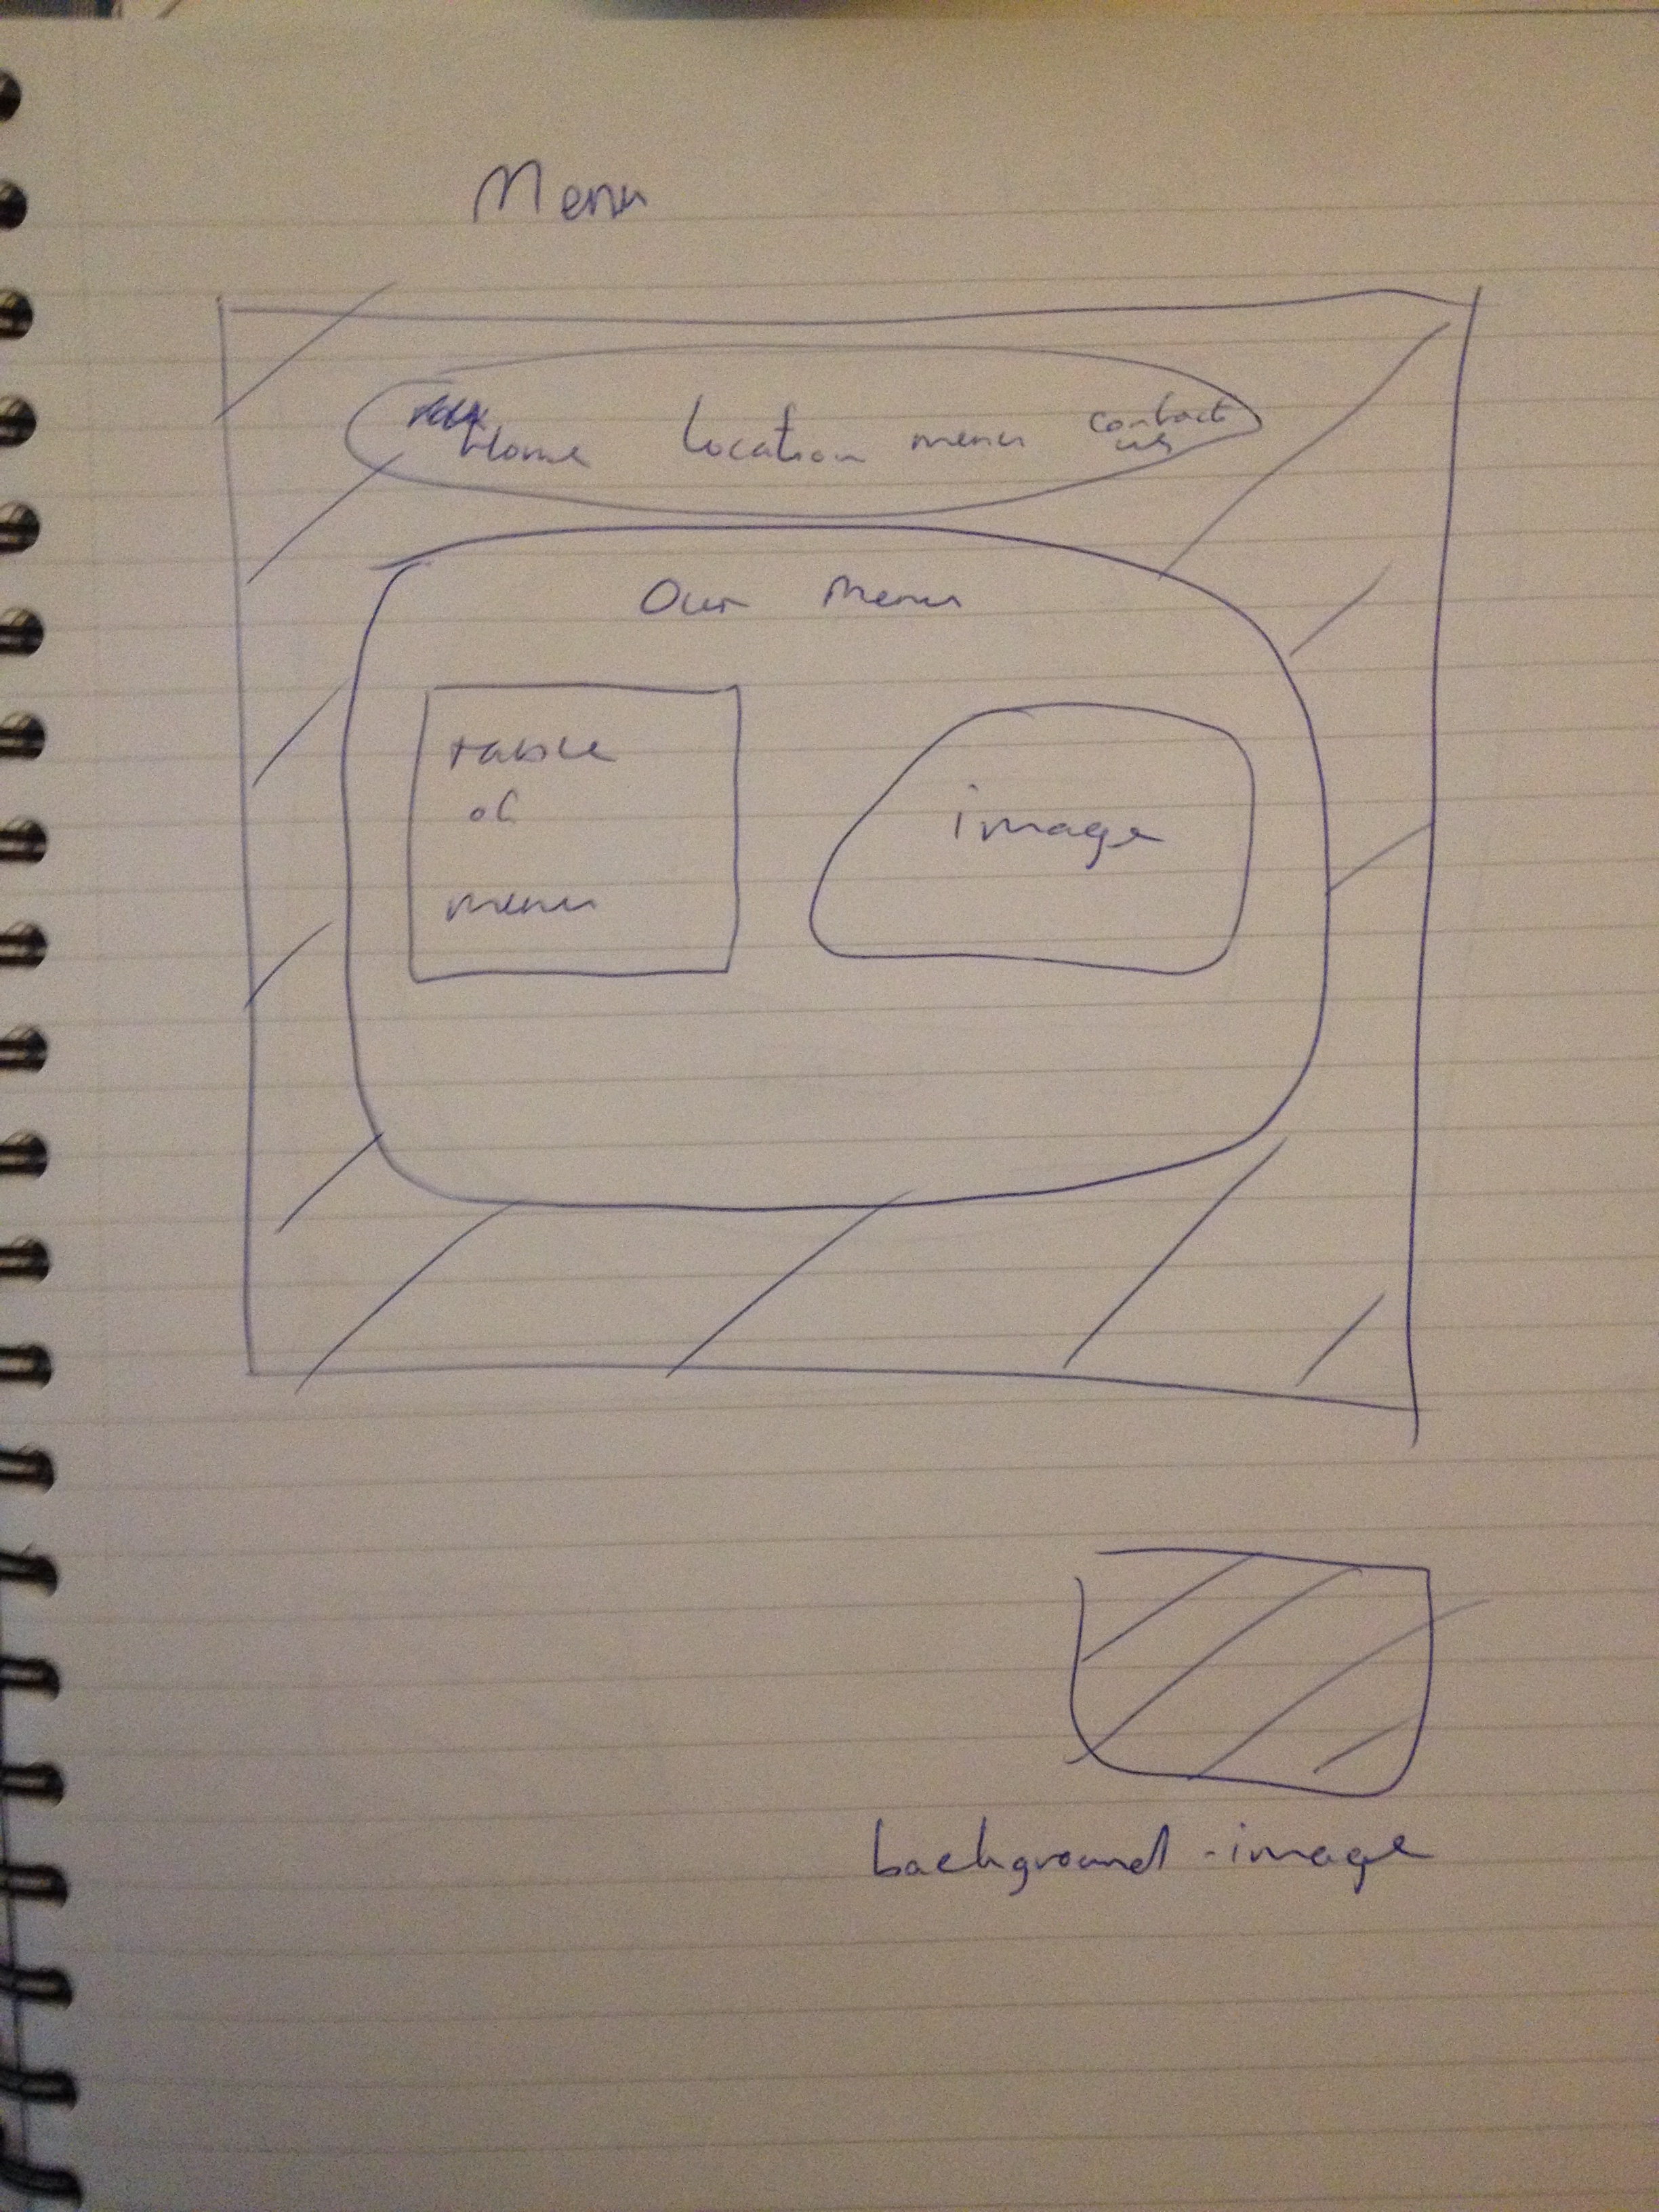 Menu
Home Location menu contact
us
Our Menu
table
of
menu
image
background-image